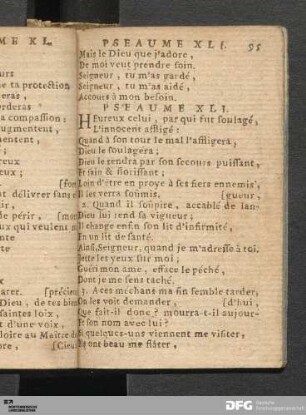 ME XL.
urs
e ta protection
eras,
rderas
a compassion:
ugmentent,
mentent,
reux
eux;
[fon
t délivrer sans
ir
de périr,
qui veulent
nte
te
x
arer. [précien
Dieu, de tes bien
saintes loix,
t d'une voix,
loire au Maître d
ore, [Cieu
PSEAUME XLI. 95
Mais le Dieu que j'adore,
De moi veut prendre soin.
Seigneur, tu m'as gardé,
Seigneur, tu m'as aidé,
Accours à mon besoin.
PSEAUME XLI.
HEureux celui, par qui fut soulagé,
L'innocent affligé:
Quand à son tour le mal l'affligera,
Dieu le soulagera;
Dieu le rendra par son secours puissant,
Et sain & florissant;
Loin d'être en proye à ses fiers ennemis,
Il les verra soûmis. [gueur,
2. Quand il soûpire, accablé de lan-
Dieu lui rend sa vigueur;
Il change enfin son lit d'infirmité,
En un lit de santé.
Ainsi, Seigneur, quand je m'adresse à toi,
Jette les yeux sur moi;
Guéri mon ame, efface le péché,
Dont je me sens taché,
3. Ces méchans ma fin semble tarder,
On les voit demander, [d'hui,
Que fait-il donc? mourra-t-il aujour-
Et son nom avec lui?
Si quelques-uns viennent me visiter,
Ils ont beau me flâter,
DFG